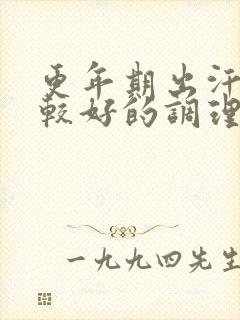 更年期出汗
較好的調理
一九九四先生